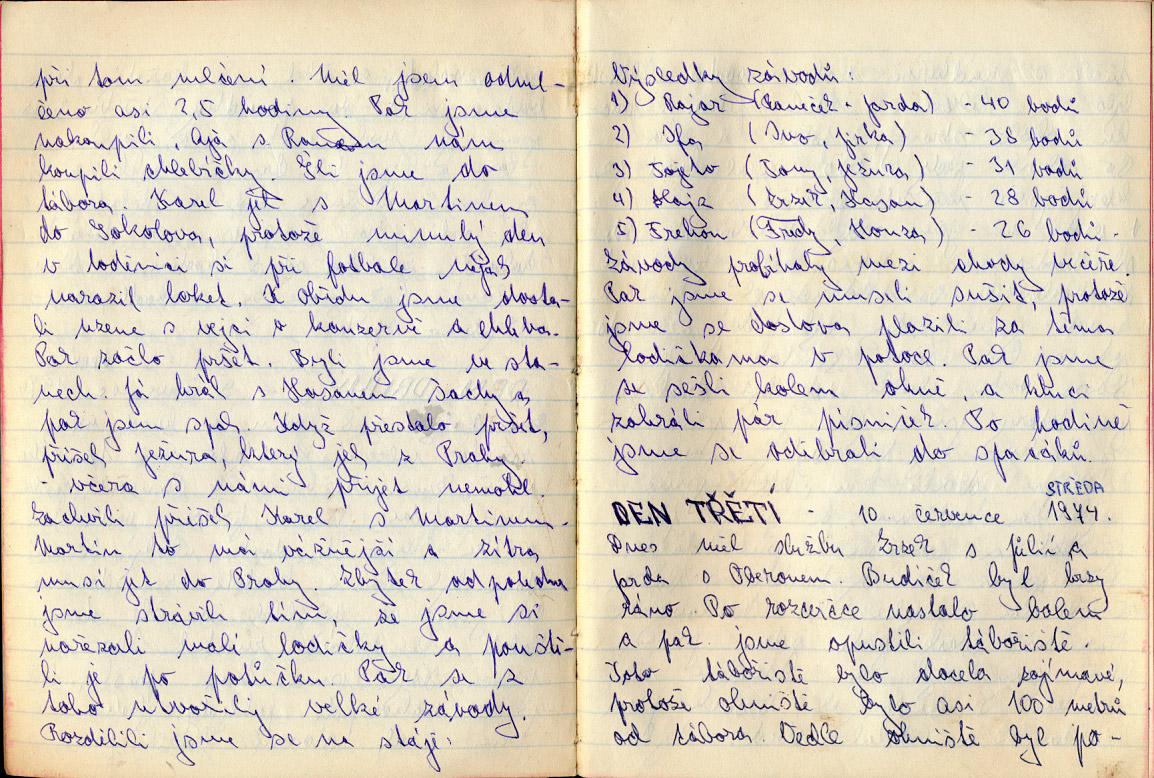 při tom mlčení. Měl jsem odml-
čeno asi 3,5 hodiny. Pak jsme
nakoupili, Ája s nám
koupili chlebíčky. Šli jsme do
tábora. Karel jel s Martinem
do Sokolova, protože minulý den
v loděnici si při fotbale nějak
narazil loket. K obědu jsme dosta-
li uzené s vejci a konzervě a chleba.
Pak začlo pršet. Byli jsme ve sta-
nech. Já hrál s Hasanem šachy a
pak jsem spal. Když přestalo pršet,
přišel Ježura, který jel z Prahy
- včera s námi přijet nemohl.
Zachvíli přišel Karel s Martinem.
Martin to má vážnější a zítra
musí jet do Prahy. Zbytek odpoledne
jsme strávili tím, že jsme si
nařezali malí lodičky a pouště-
li je po potůčku. Pak se z
toho utvořily velké závody.
Rozdělili jsme se na stáje:
Výsledky závodů:
1) Rajar (Raneček - Jarda) - 40 bodů
2) Ifa (Ivo, Jirka) - 38 bodů
3) Tojeto (Tony, Ježura) - 31 bodů
4) Hajz (Zrzek, Hasan) - 28 bodů
5) Frehon (Fredy, Honza) - 26 bodů.
Závody probíhaly mezi chody večeře.
Pak jsme se museli sušit, protože
jsme se doslova plazili za těma
lodičkama v potoce. Pak jsme
se sešli kolem ohně, a kluci
zahráli pár písniček. Po hodině
jsme se odebrali do spacáků.
STŘEDA
DEN TŘETÍ - 10. července 1974.
Dnes měl službu Zrzek s Júlií a
Jarda s Oberonem. Budíček byl brzy
ráno. Po rozcvičce nastalo balení
a pak jsme opustili tábořiště.
Toto tábořiště bylo docela zajímavé,
protože ohniště bylo asi 100 metrů
od tábora. Vedle ohniště byl po-